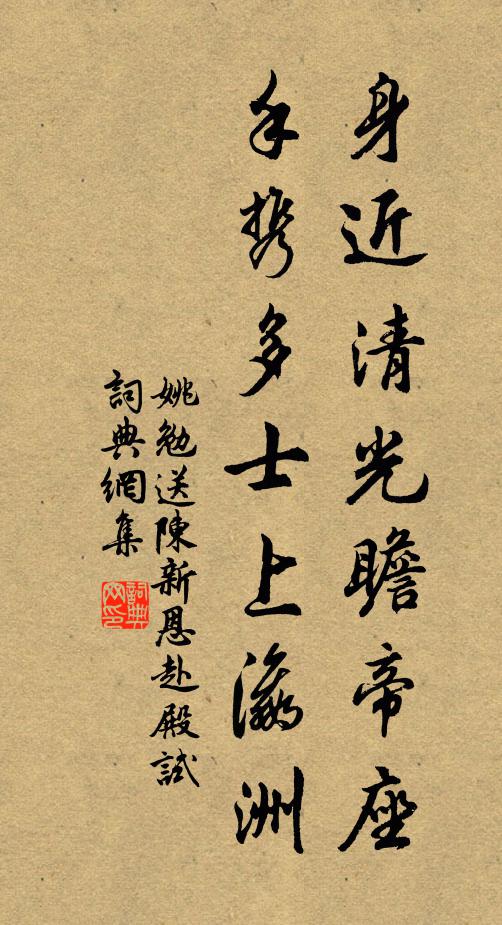 身近清光瞻帝座
手携多士上瀛洲
姚勉送陳新恩赴殿試
詞典網集
詞典网印